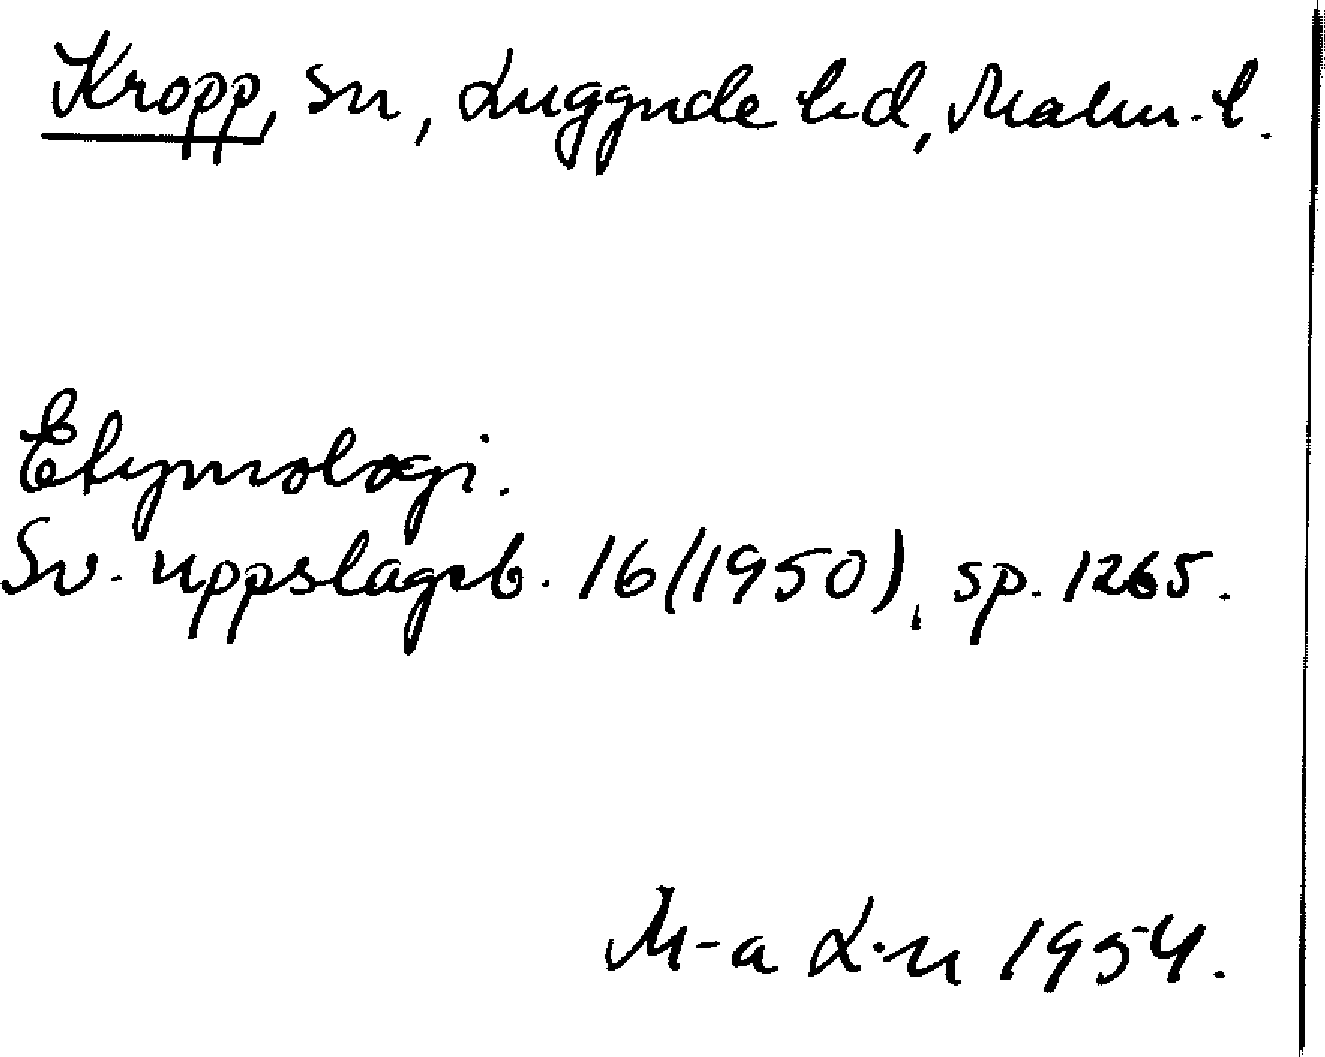 Kropp, sn, Luggude hd, Malm. l.
Etymologi.
Sv. uppslagsb. 16 (1950), sp. 1265.
M-a L-n 1954.